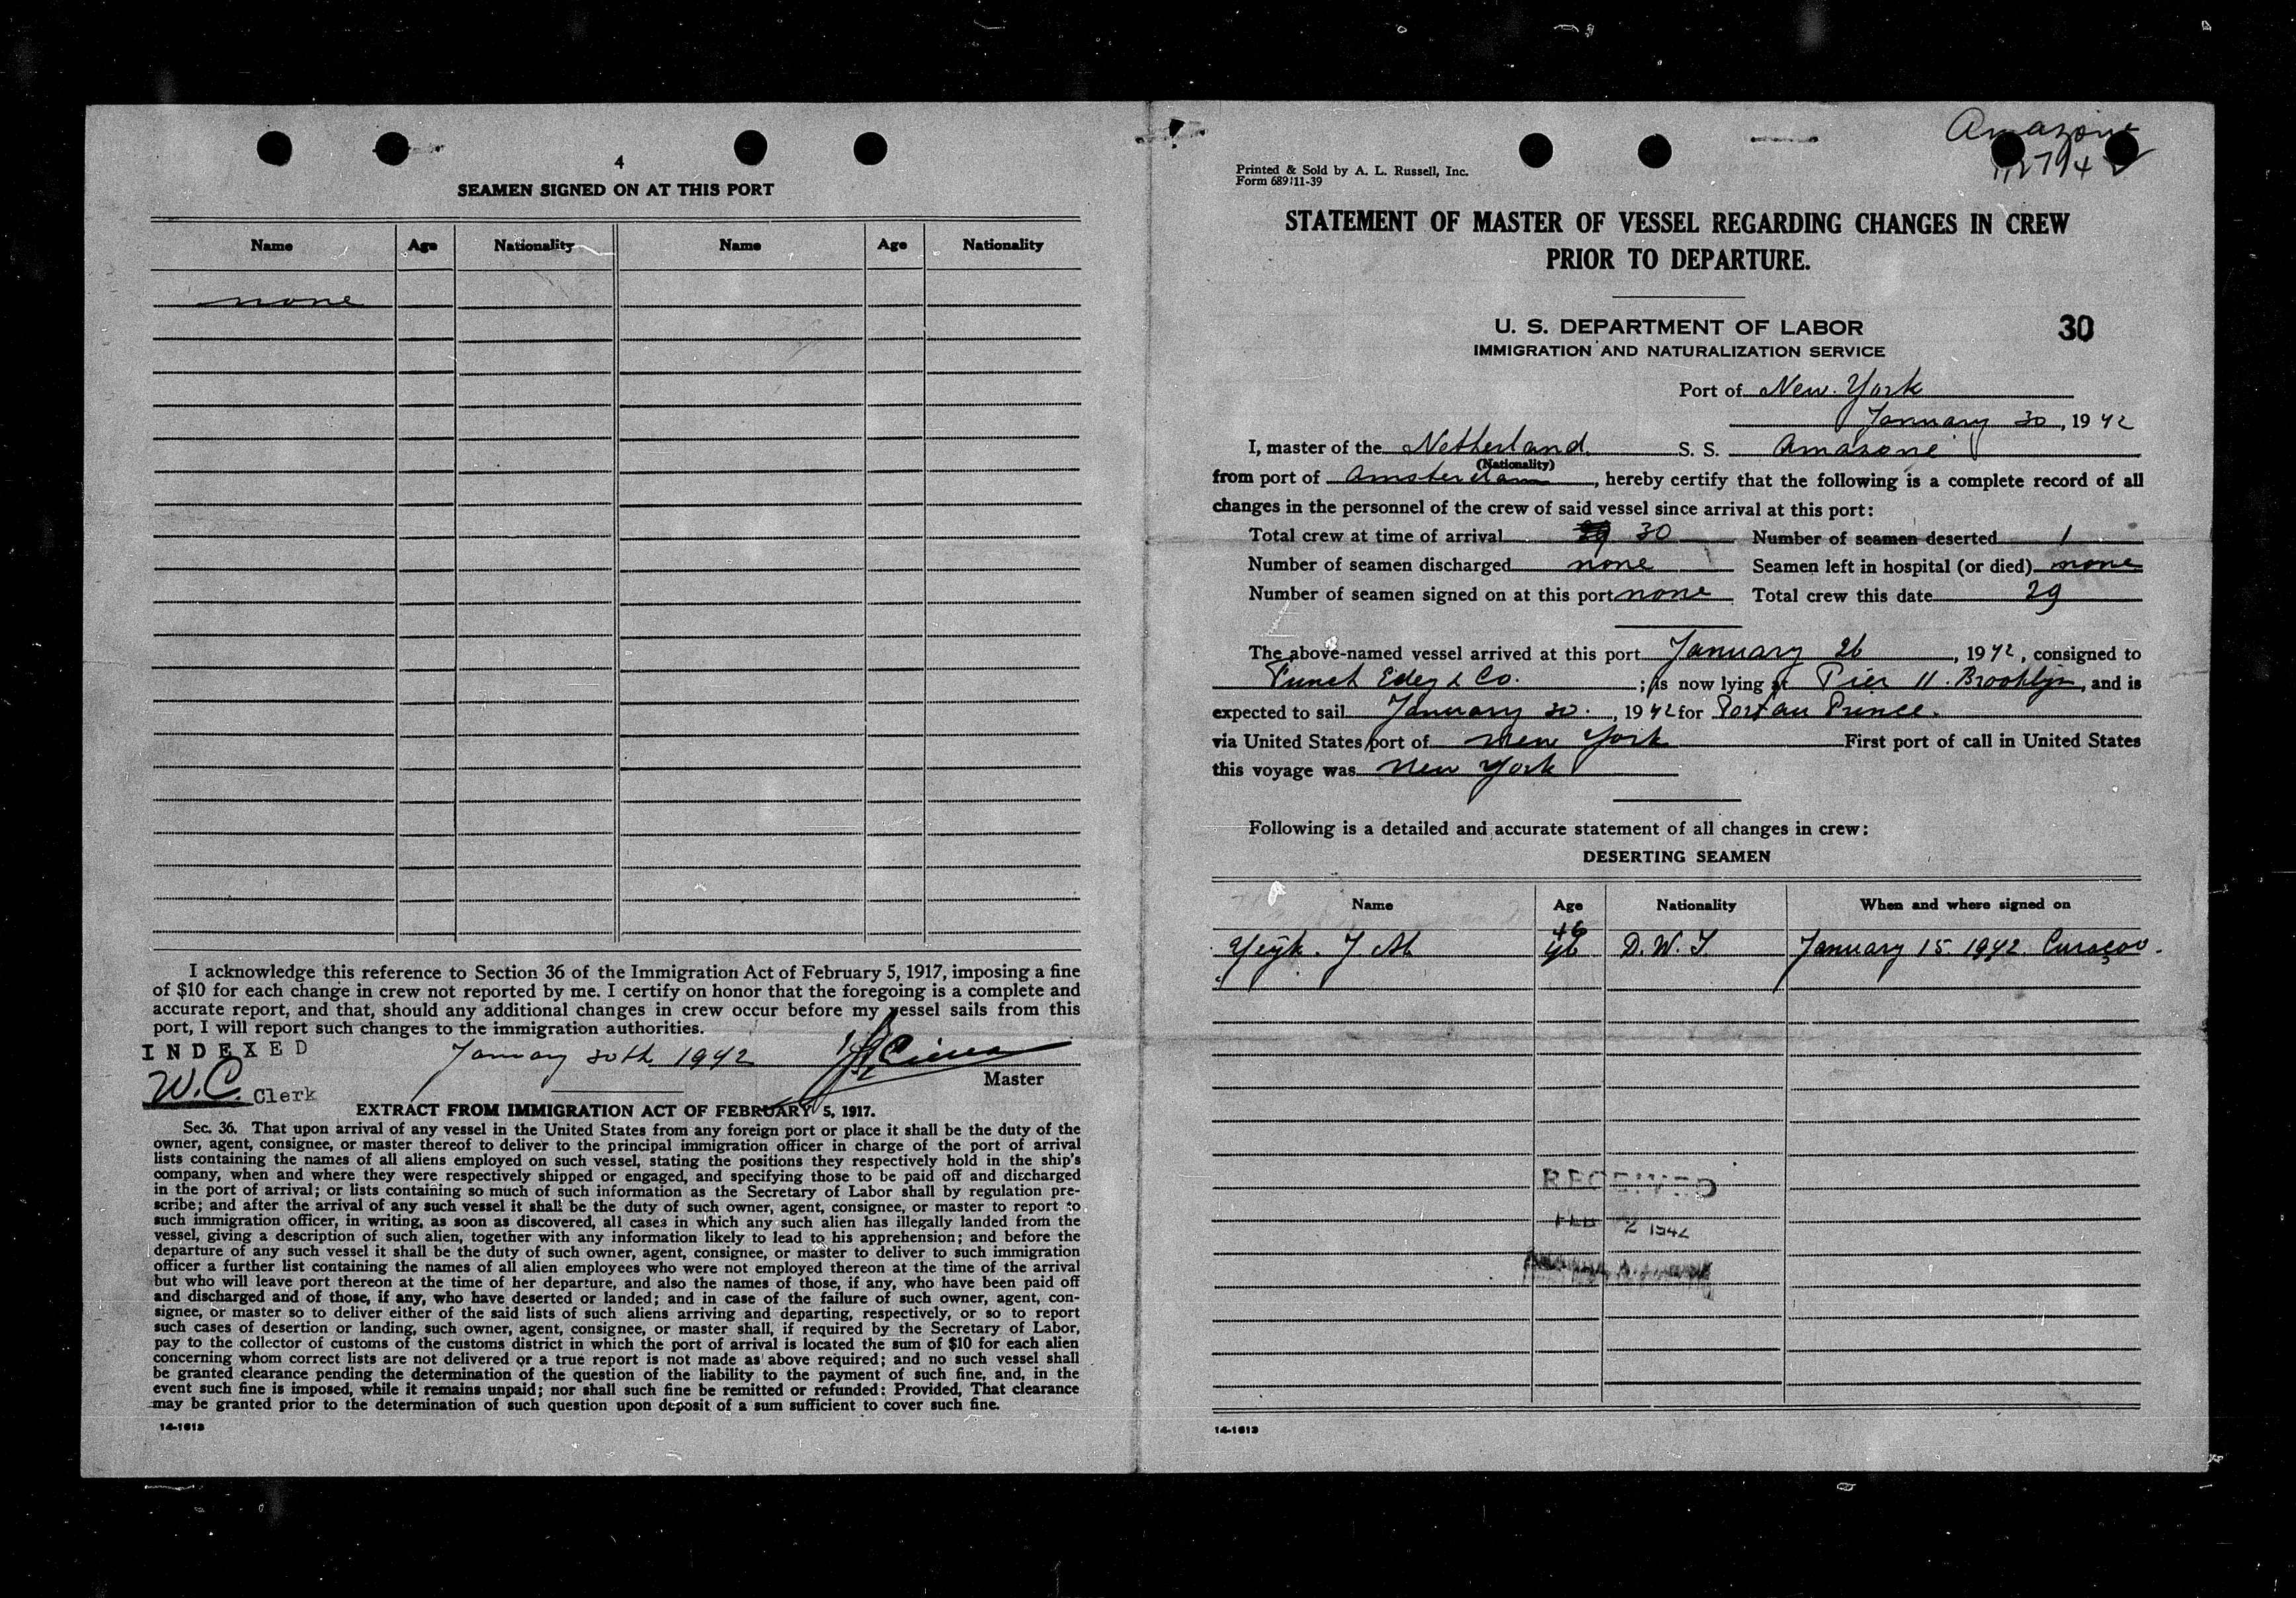 4
SEAMEN SIGNED ON AT THIS PORT
Name Age Nationality Name Age Nationality
none
I acknowledge this reference to Section 36 of the Immigration Act of February 5, 1917, imposing a fine
of $10 for each change in crew not reported by me. I certify on honor that the foregoing is a complete and
accurate report, and that, should any additional changes in crew occur before my vessel sails from this
port, I will report such changes to the immigration authorities.
INDEXED
January 30th 1942
Master
W.C. Clerk
EXTRACT FROM IMMIGRATION ACT OF FEBRUARY 5, 1917.
Sec. 36. That upon arrival of any vessel in the United States from any foreign port or place it shall be the duty of the
owner, agent, consignee, or master thereof to deliver to the principal immigration officer in charge of the port of arrival
lists containing the names of all aliens employed on such vessel, stating the positions they respectively hold in the ship's
company, when and where they were respectively shipped or engaged, and specifying those to be paid off and discharged
in the port of arrival; or lists containing so much of such information as the Secretary of Labor shall by regulation pre-
scribe; and after the arrival of any such vessel it shall be the duty of such owner, agent, consignee, or master to report to
such immigration officer, in writing, as soon as discovered, all cases in which any such alien has illegally landed from the
vessel, giving a description of such alien, together with any information likely to lead to his apprehension; and before the
departure of any such vessel it shall be the duty of such owner, agent, consignee, or master to deliver to such immigration
officer a further list containing the names of all alien employees who were not employed thereon at the time of the arrival
but who will leave port thereon at the time of her departure, and also the names of those, if any, who have been paid off
and discharged and of those, if any, who have deserted or landed; and in case of the failure of such owner, agent, con-
signee, or master so to deliver either of the said lists of such aliens arriving and departing, respectively, or so to report
such cases of desertion or landing, such owner, agent, consignee, or master shall, if required by the Secretary of Labor,
pay to the collector of customs of the customs district in which the port of arrival is located the sum of $10 for each alien
concerning whom correct lists are not delivered or a true report is not made as above required; and no such vessel shall
be granted clearance pending the determination of the question of the liability to the payment of such fine, and, in the
event such fine is imposed, while it remains unpaid; nor shall such fine be remitted or refunded: Provided, That clearance
may be granted prior to the determination of such question upon deposit of a sum sufficient to cover such fine.
14-1613
Amazone
Printed & Sold by A. L. Russell, Inc.
Form 689 11-39
STATEMENT OF MASTER OF VESSEL REGARDING CHANGES IN CREW
PRIOR TO DEPARTURE.
U. S. DEPARTMENT OF LABOR
30
IMMIGRATION AND NATURALIZATION SERVICE
Port of New York
January 30, 1942
I, master of the Netherland S. S. Amazone
(Nationality)
from port of Amsterdam, hereby certify that the following is a complete record of all
changes in the personnel of the crew of said vessel since arrival at this port:
Total crew at time of arrival 30 Number of seamen deserted 1
Number of seamen discharged none Seamen left in hospital (or died) none
Number of seamen signed on at this port none Total crew this date 29
The above-named vessel arrived at this port January 26, 1942, consigned to
Funch Edey & Co.; is now lying at Pier 11. Brooklyn, and is
expected to sail January 30., 1942 for Port au Prince.
via United States port of New York First port of call in United States
this voyage was New York
Following is a detailed and accurate statement of all changes in crew:
DESERTING SEAMEN
Name Age Nationality When and where signed on
46
D.W.I. January 15. 1942. Curaçao.
RECEIVED
FEB 2 1942
14-1613